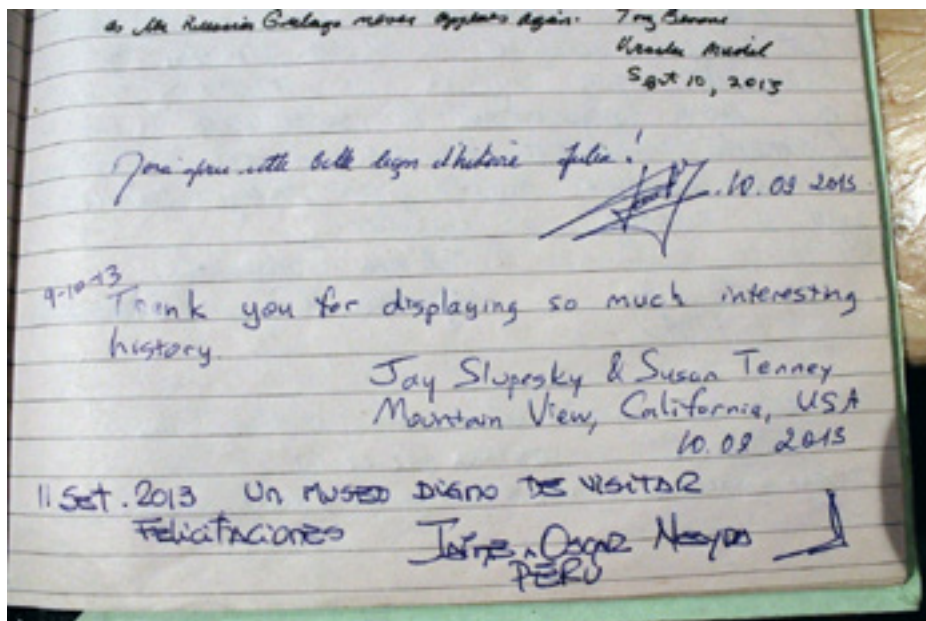 as the Russian Gulags never appears again. Tony
Sept 10, 2013
cette belle leçon d'histoire
10.09 2013
9-10-13
Thank you for displaying so much interesting
history.
Jay Slupesky & Susan Tenney
Mountain View, California, USA
10.09 2013
11 Set. 2013 Un MUSEO DIGNO DE VISITAR
FELICITACIONES Jaime Oscar
PERU